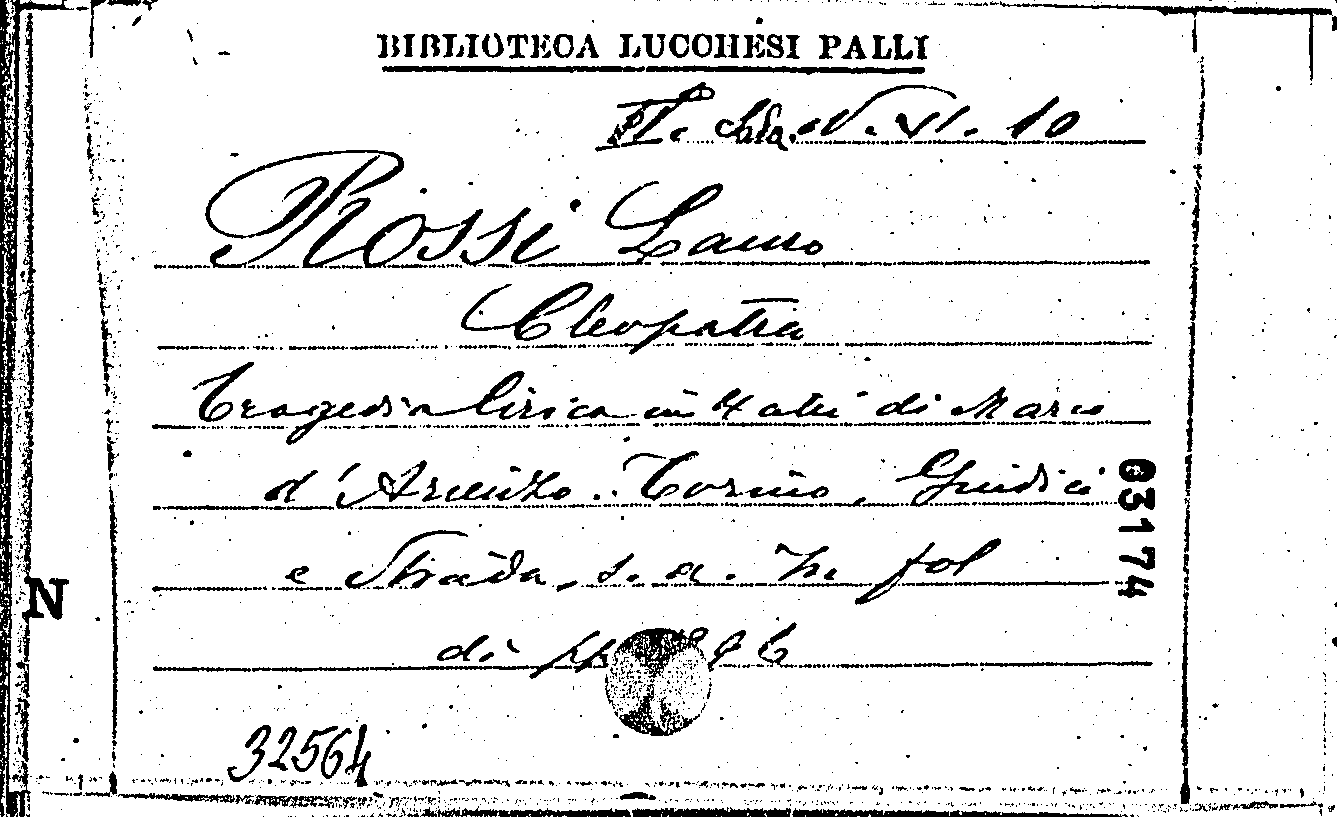 BIBLIOTECA LUCCHESI PALLI
V. VI. 10
Rossi Lauro
Cleopatra
Tragedia lirica in 4 atti di Marco
d'Arienzo. Torino, Giudici
e Strada, s. a. In fol
di pp.
32564
63174
N